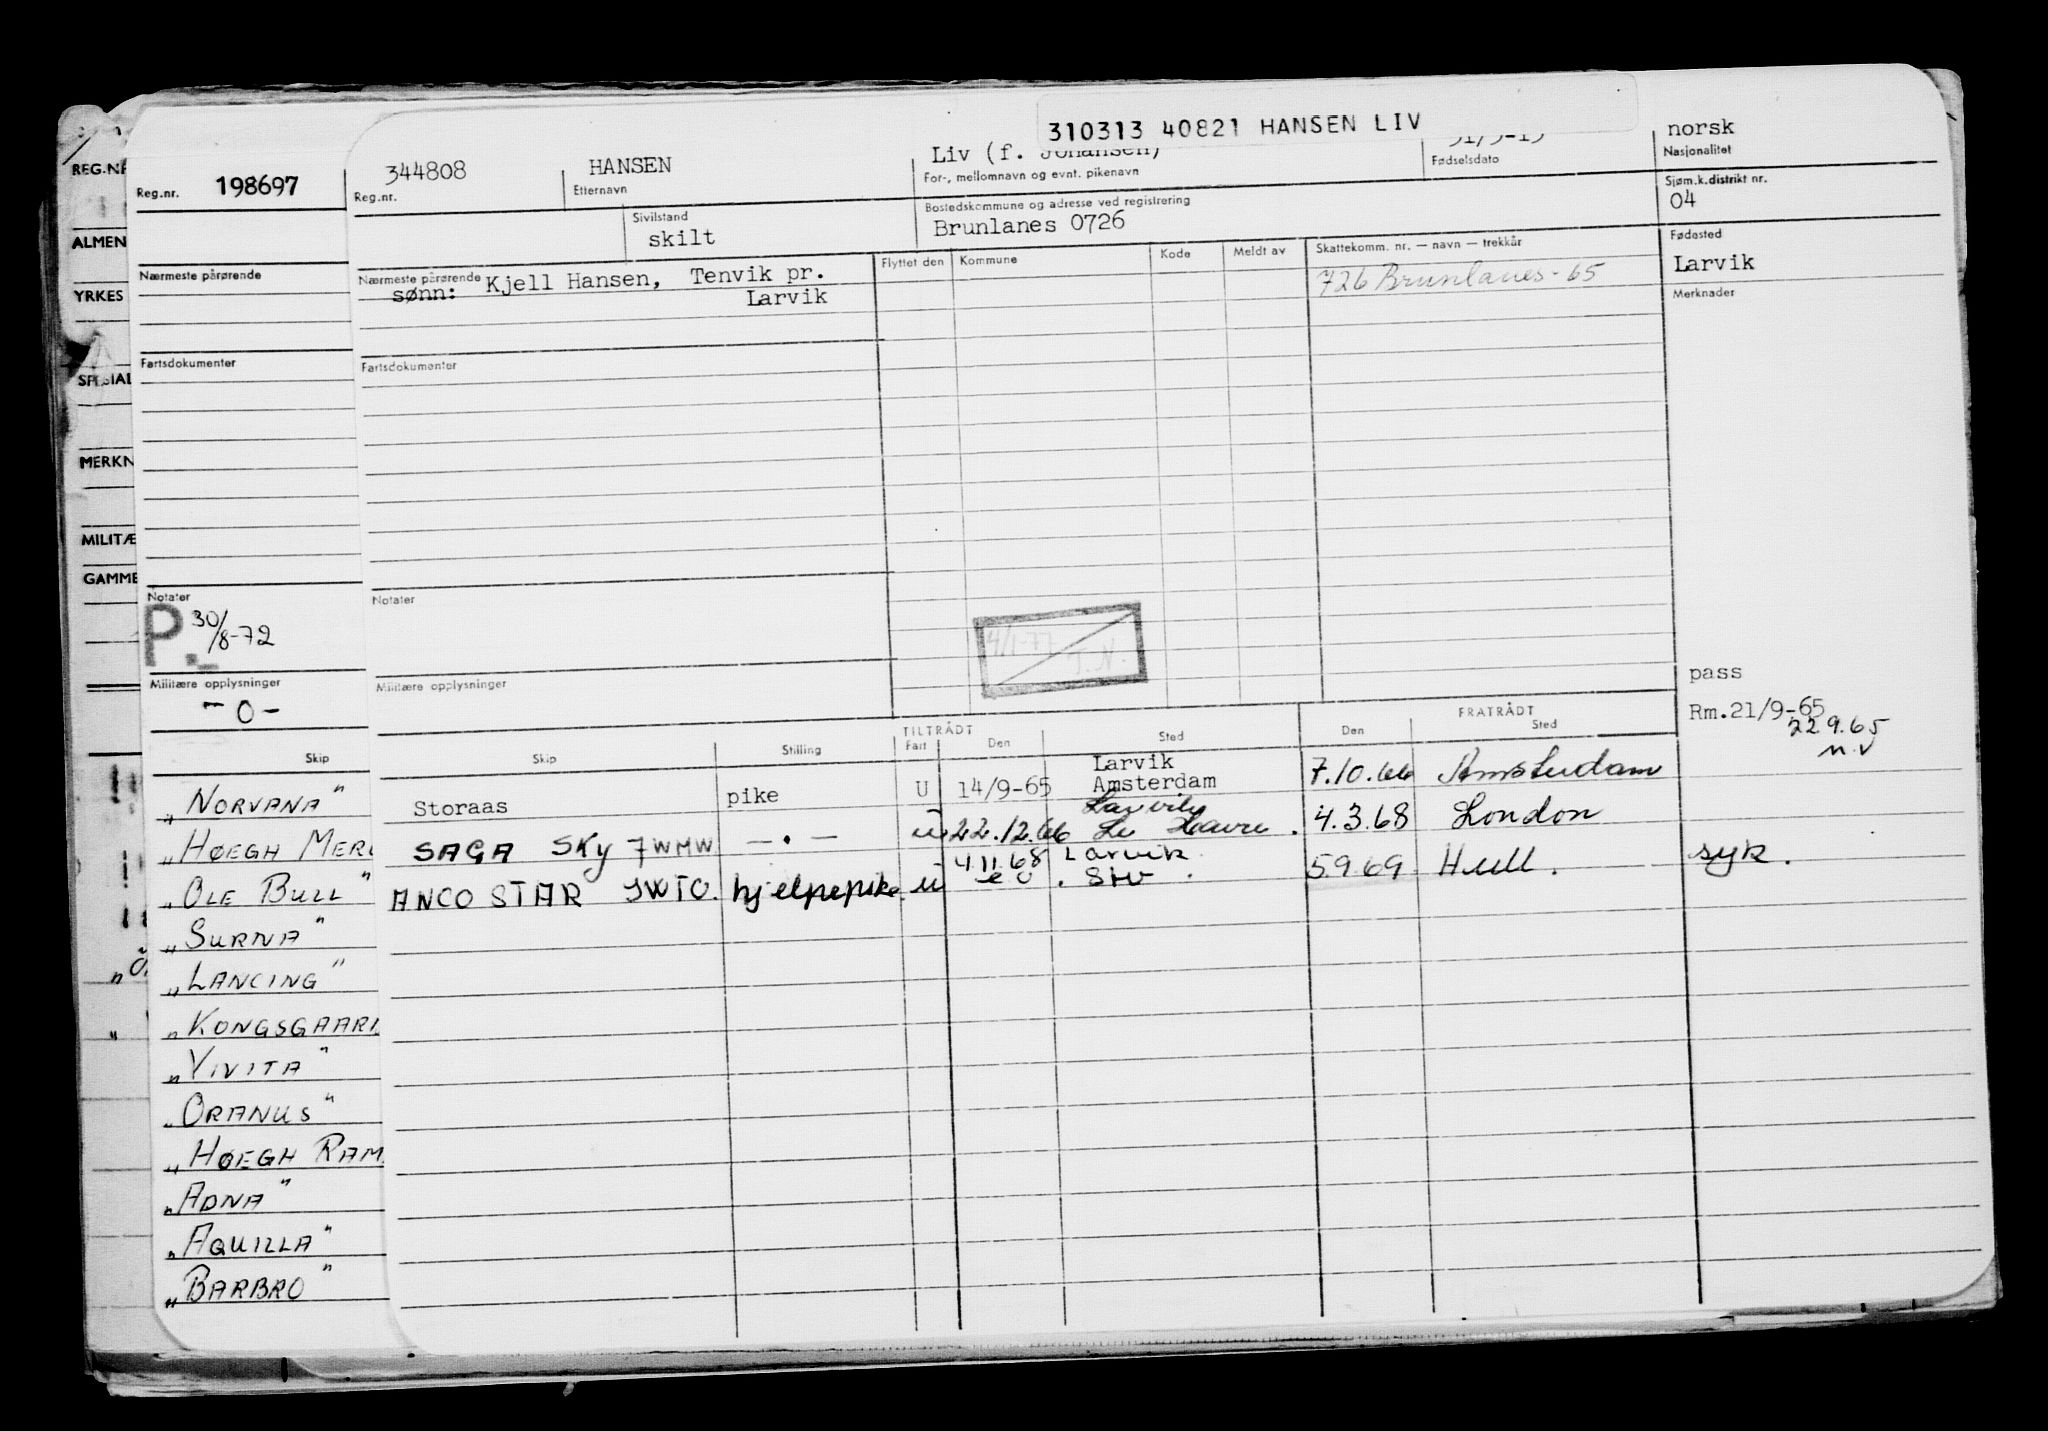 310313 40821 HANSEN LIV
REG.NR
ALMEN
YRKES
SPESIAL
MERKN
MILITÆ
GAMME
Reg.nr. 198697
Nærmeste pårørende
Fartsdokumenter
Notater
P. 30/8-72
Militære opplysninger
- 0 -
Skip
„NORVANA"
„HØEGH MER
„OLE BULL"
„SURNA"
„LANCING"
„KONGSGAAR
„VIVITA"
„ORANUS"
„HØEGH RAM
„ADNA"
„AQUILLA"
„BARBRO"
344808 HANSEN Liv (f. Johansen) norsk
Reg.nr. Etternavn For-, mellomnavn og evnt. pikenavn Fødselsdato Nasjonalitet
Sivilstand Bostedskommune og adresse ved registrering Sjøm.k.distrikt nr.
skilt Brunlanes 0726 04
Nærmeste pårørende Flyttet den Kommune Kode Meldt av Skattekomm. nr. — navn — trekkår Fødested
sønn: Kjell Hansen, Tenvik pr. 726 Brunlanes - 65 Larvik
Larvik Merknader
Fartsdokumenter
Notater
4/1-77
T.N.
Militære opplysninger
pass
Rm.21/9-65
22.9.65
TILTRÅDT FRATRÅDT
Skip Stilling Fart Den Sted Den Sted
Larvik
Storaas pike U 14/9-65 Amsterdam 7.10.66 Amsterdam
Larvik
SAGA SKY JWMW — . — u 22.12.66 Le Havre . 4.3.68 London
4.11.68 Larvik
ANCO STAR JWTO. hjelpepike. u 5.9.69 Hull . syk .